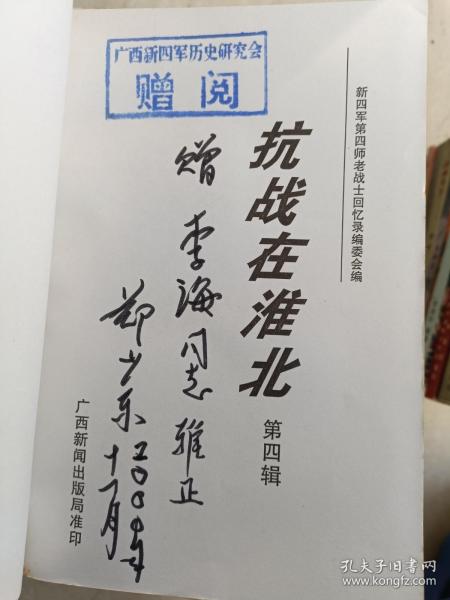 广西新四军历史研究会
赠 阅
新四军第四师老战士回忆录编委会编
抗战在淮北
第四辑
赠 李海同志 雅正
郑少东
二〇〇〇年
十一月
广西新闻出版局准印
孔夫子旧书网
www.kongfz.com